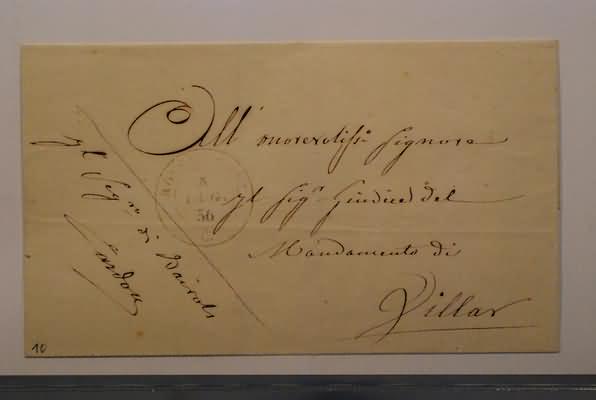 All' onorevolis.º Signore
Il Sig.r Giudice del
Mandamento di
Villar
Il Sig.re di
8
LUG
56
10